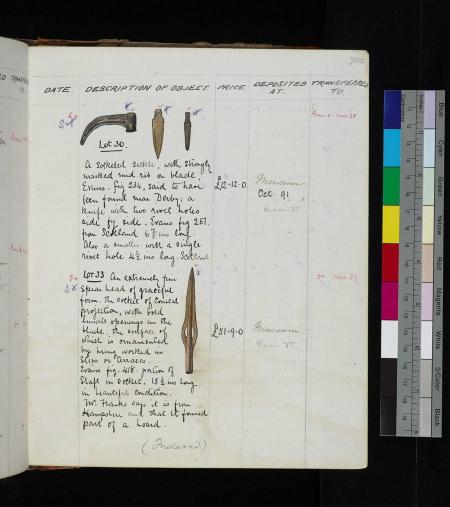 DATE. DESCRIPTION OF OBJECT. PRICE. DEPOSITED AT. TRANSFERRED TO.
Lot 30.
A socketed sickle, with strongly
marked mid rib on blade,
Evans. fig 234, said to have
been found near Derby; a
knife with two rivet holes
side by side. Evans fig 251.
from Scotland 6 1/2 ins long.
Also a smaller with a single
rivet hole 4 1/2 ins long. Scotland
£12-12-0.
Museum
Oct. 91
Room VI
Lot 33 An extremely fine
spear head of graceful
form. the socket of conical
projection, with bold
lunate openings in the
blade, the surface of
which is ornamented
by being worked in
steps or terraces.
Evans fig. 418. portion of
Shaft in socket. 15 1/2 ins long.
in beautiful condition.
Mr. Franks says it is from
Hampshire and that it formed
part of a hoard.
£51-9-0
Museum
Room VI
(Indexed)
Blue
Cyan
Green
Yellow
Red
Magenta
White
3/Color
Black